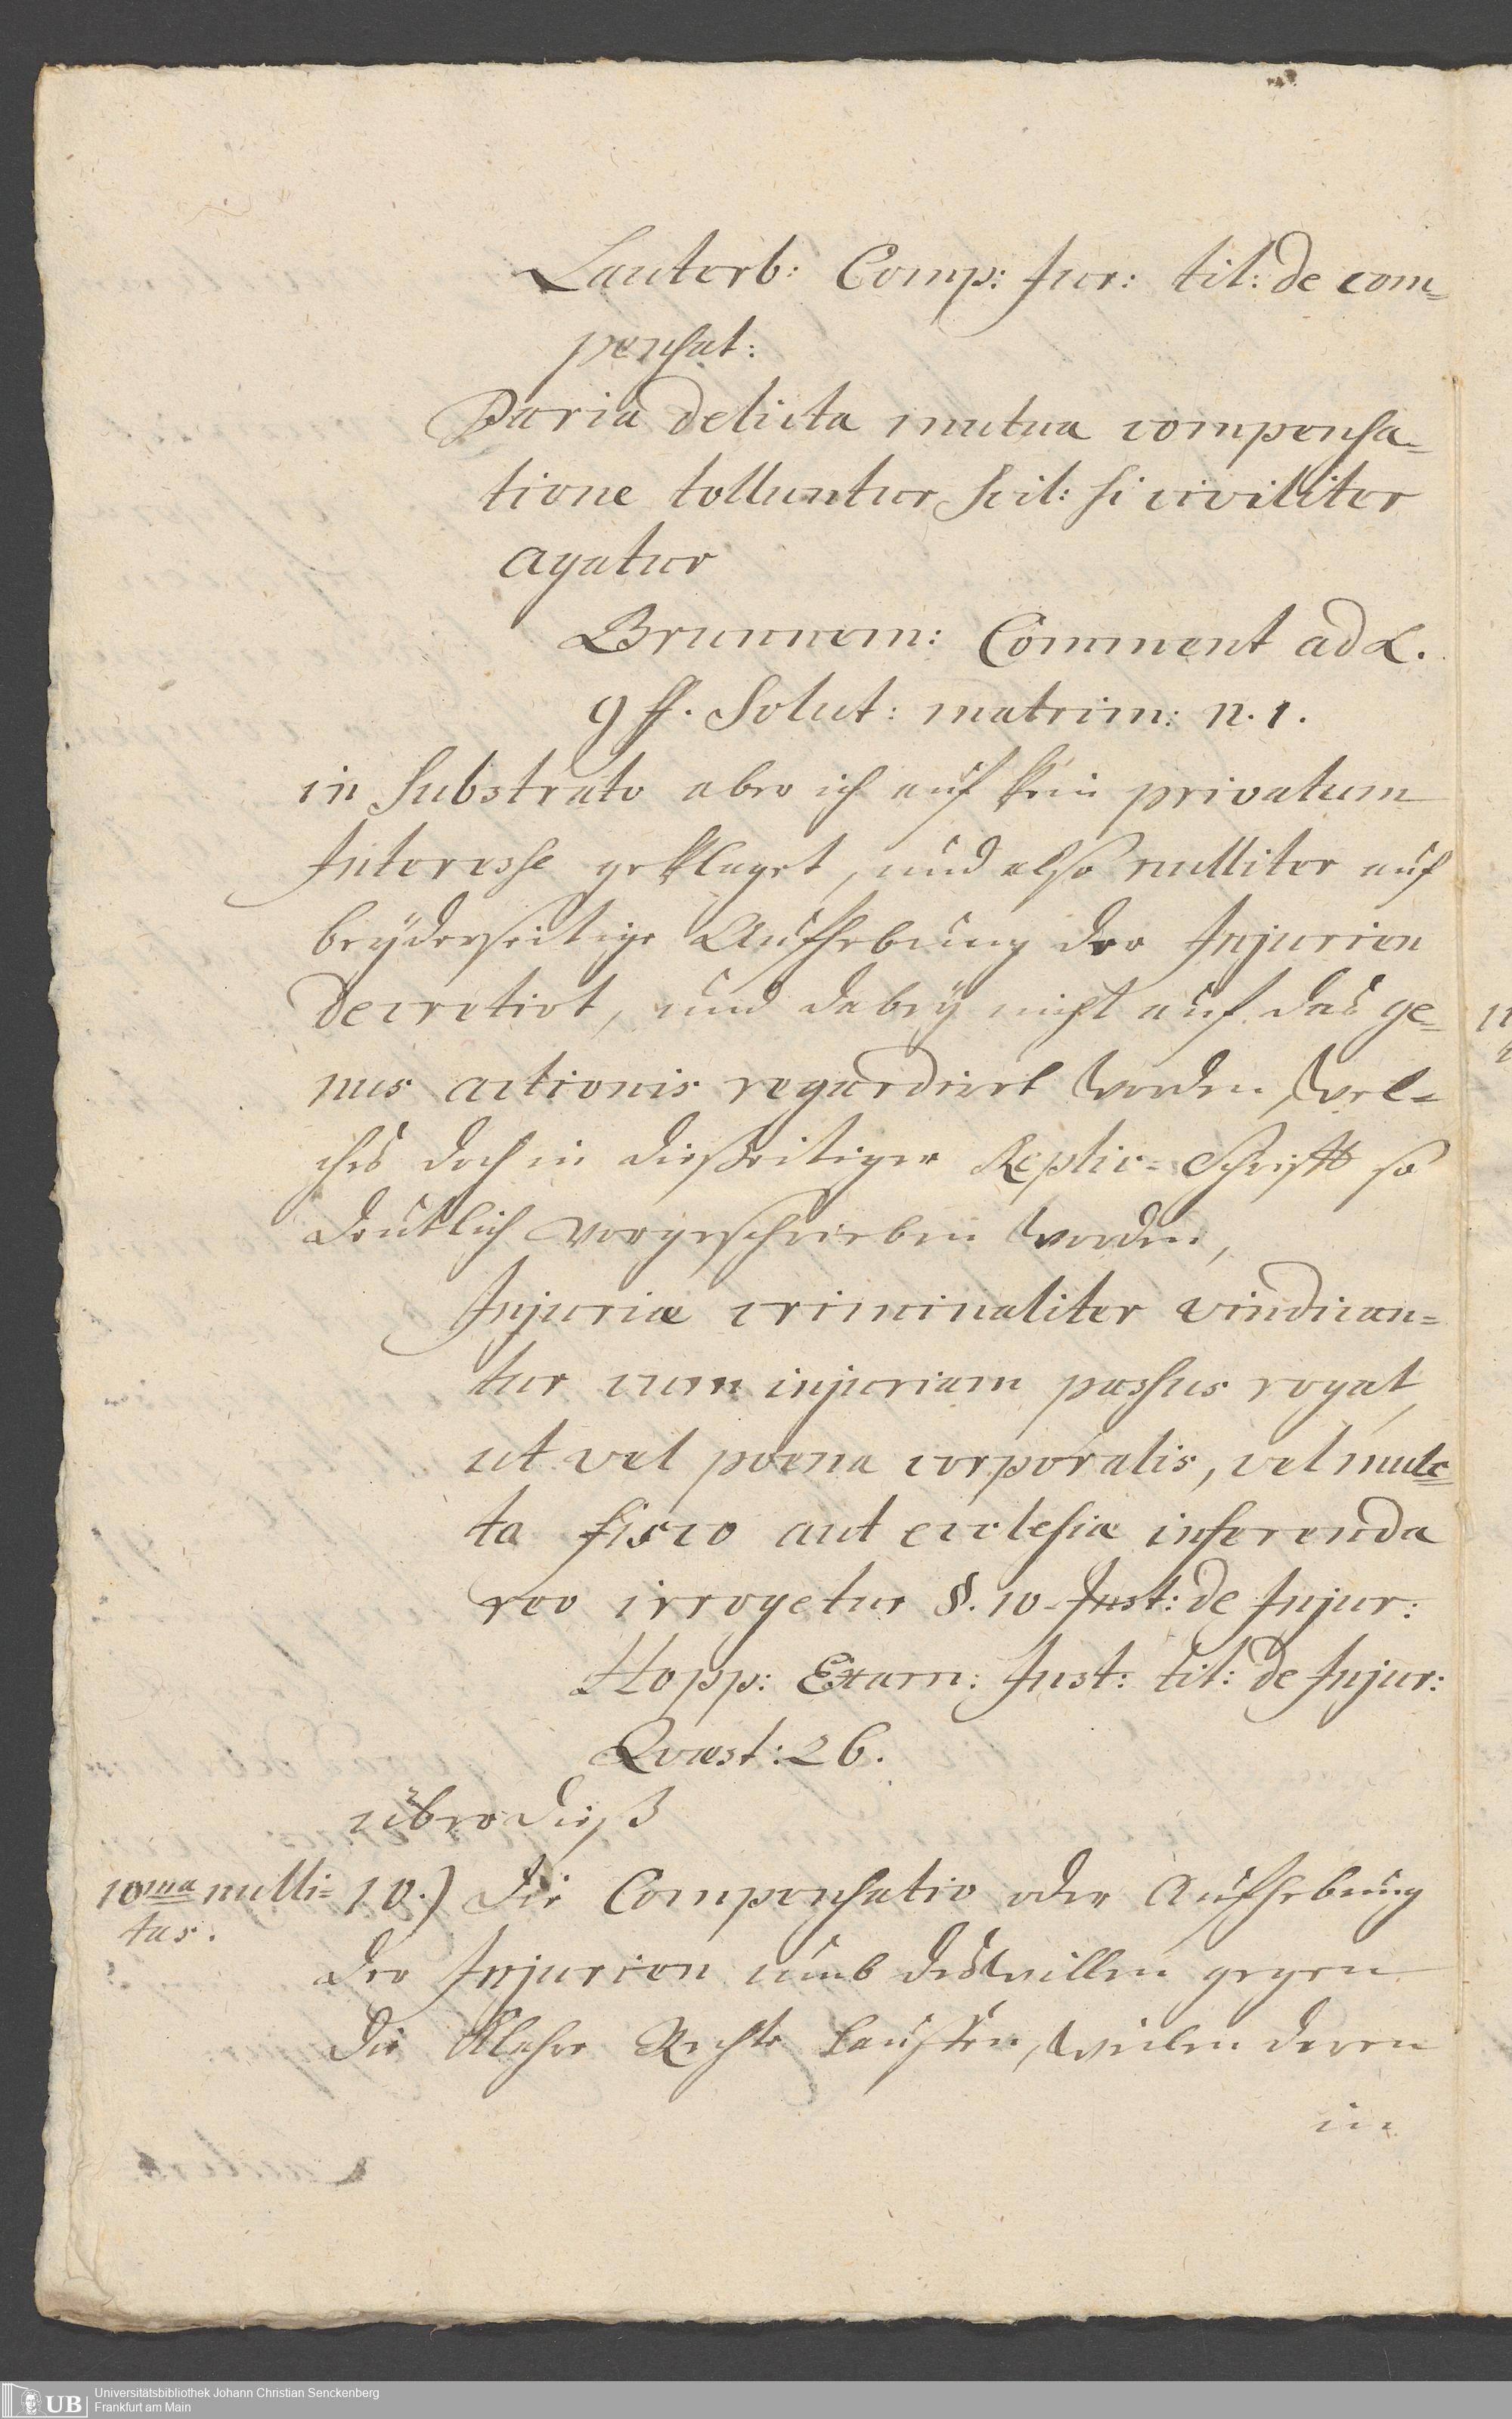 Lauterb: Comp: Jur: tit: de com=
pensat:
Paria delicta mutua compensa=
tione tolluntur scil: si civiliter
agatur
Brunnem: Comment ad L.
9 ff. Solut: matrim: n. 1.
in Substrato aber ich auf kein privatum
Interesse geklaget, und also nulliter auf
beyderseitige Aufhebung der Injurien
decretirt, und dabey nicht auf das ge=
nus actionis regardirt worden, wel=
ches doch in dießeitiger Replic=Schrifft so
deutlich vorgeschrieben worden,
Injuriæ criminaliter vindican=
tur cum injuriam passus rogat,
ut vel poena corporalis, vel mulc=
ta fisco aut ecclesiæ inferenda
reo irrogetur §. 10 Inst: de Injur:
Hopp: Exam: Inst: tit: de Injur:
Quæst: 26.
über dieß
10ma nulli=
tas.
10.) die Compensatio oder Aufhebung
der Injurien umb deswillen gegen
die klahre Rechte lauffen, weilen deren
in
Universitätsbibliothek Johann Christian Senckenberg
Frankfurt am Main
UB